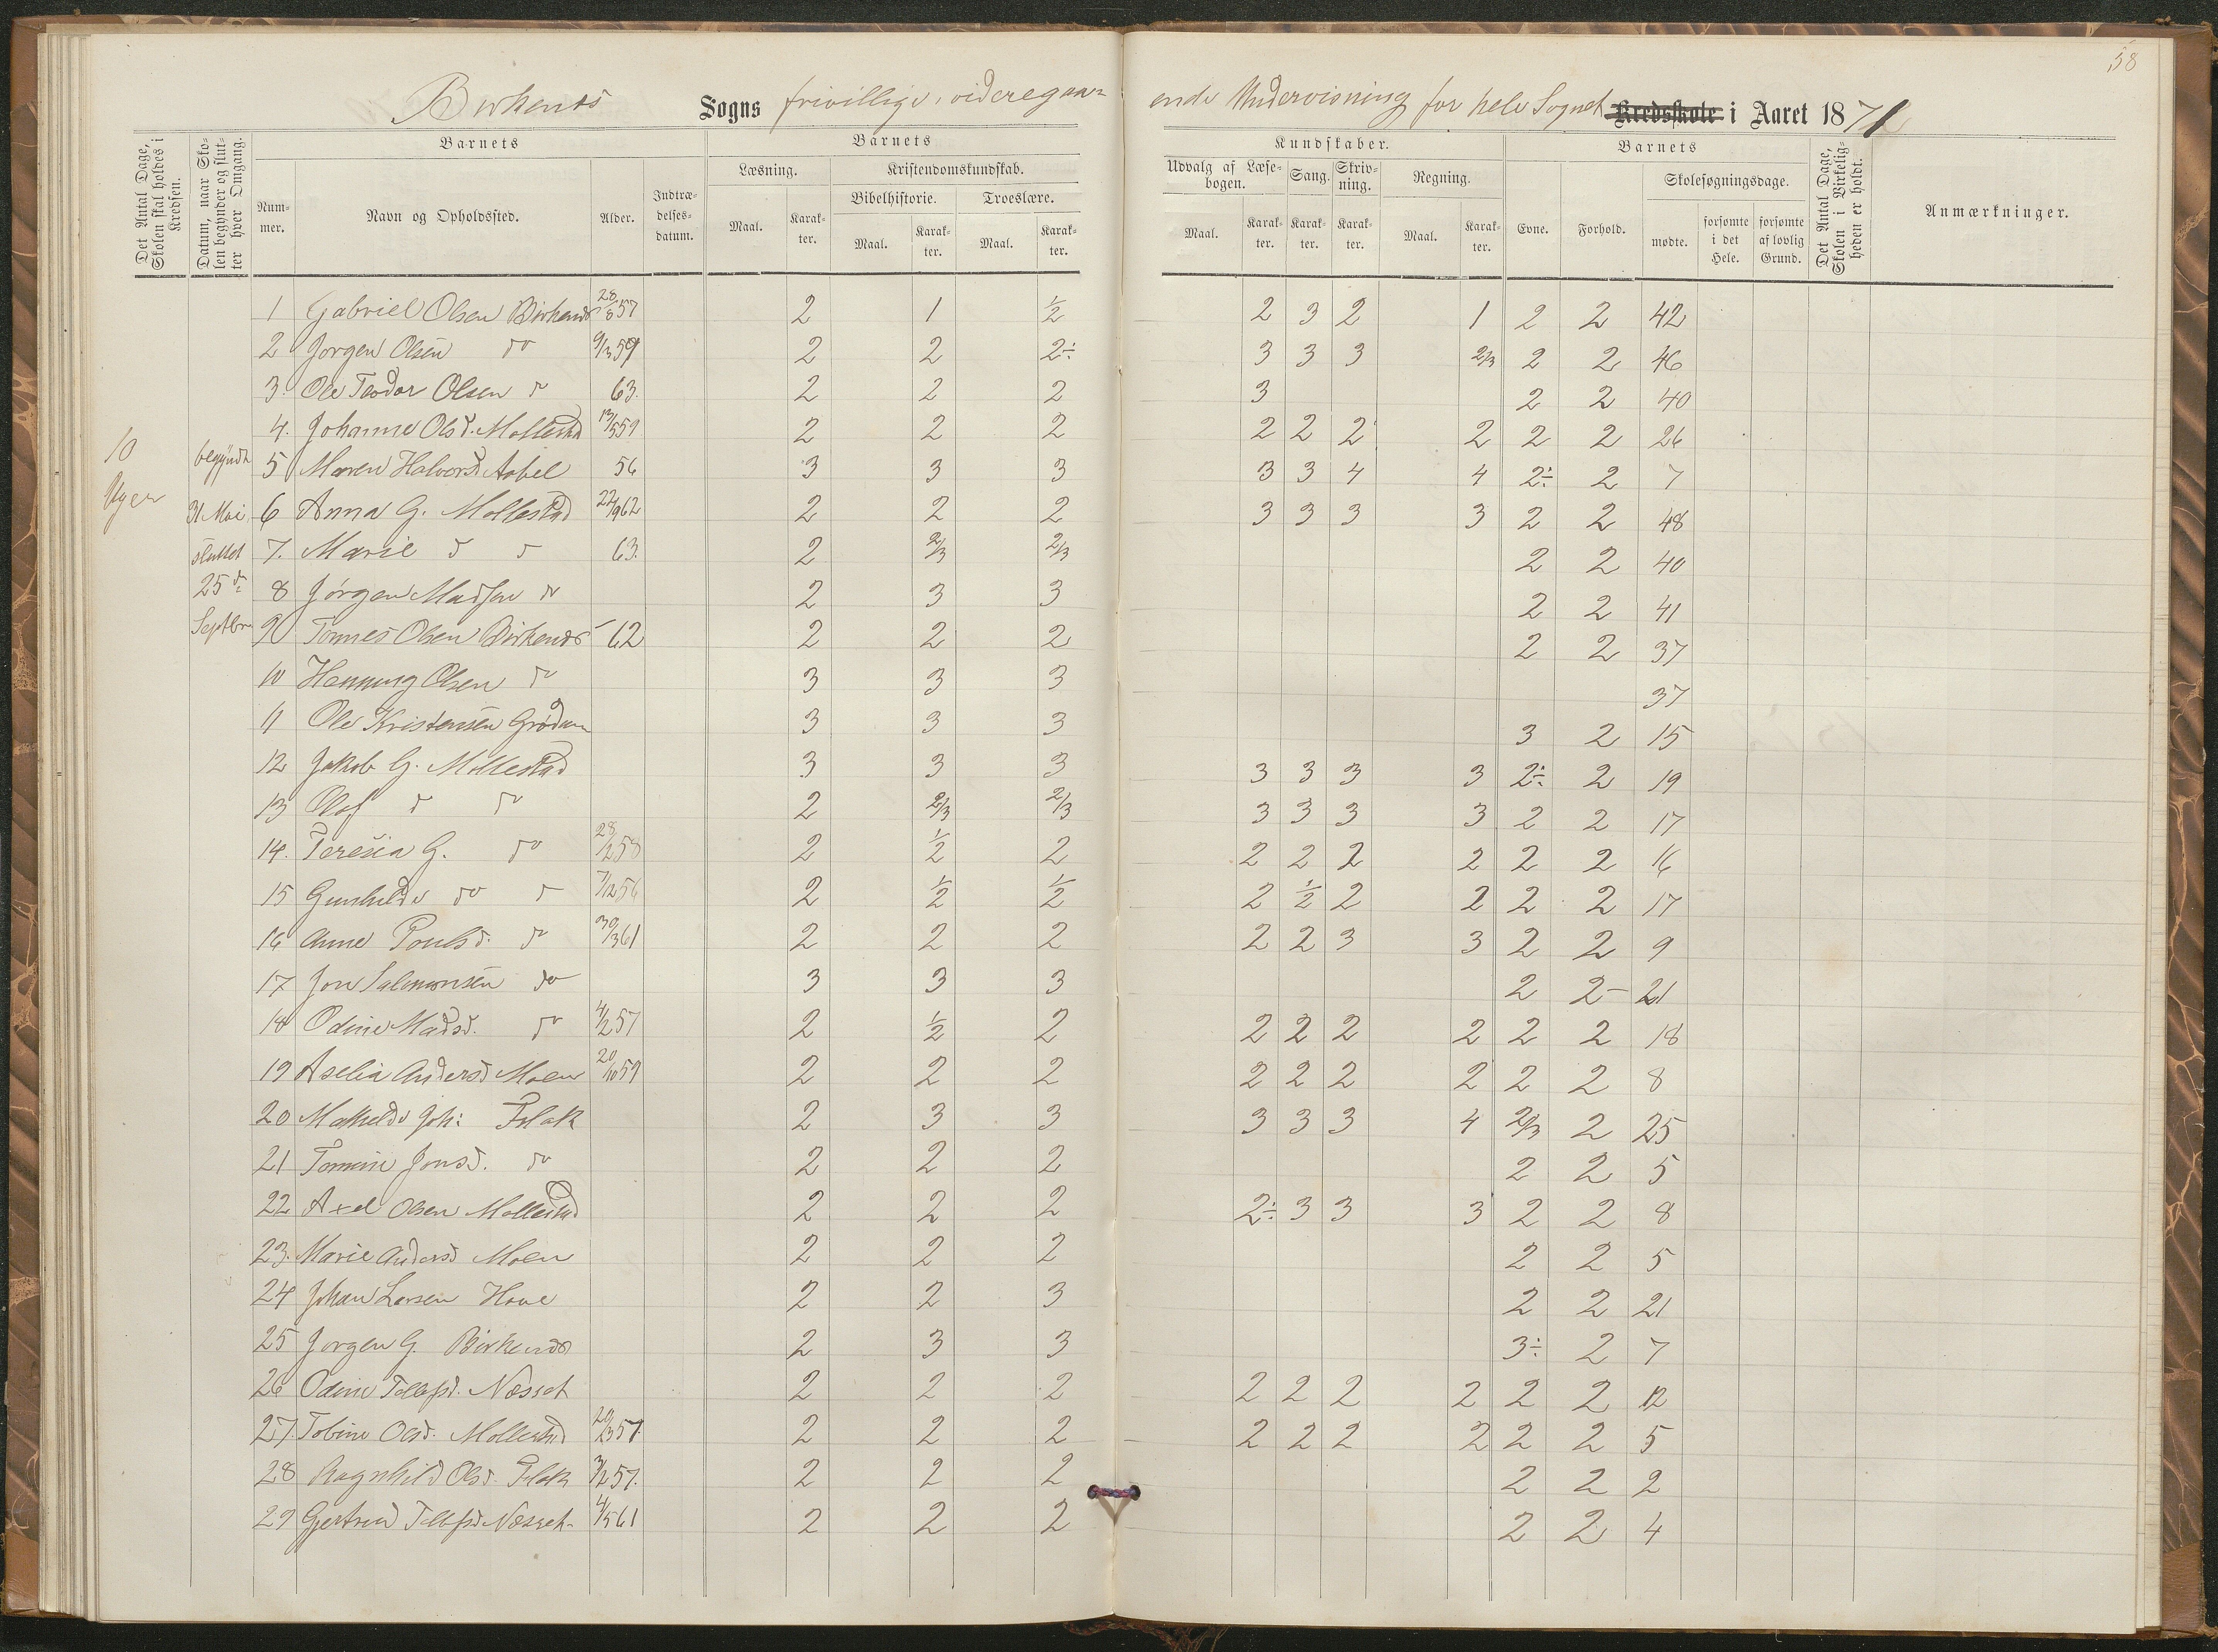 58
Birkenes Sogns frivillige, videregaa=
ende Undervisning for hele Sognet Kredsskole i Aaret 1871
Det Antal Dage, Skolen skal holdes i Kredsen.
Datum, naar Skolen begynder og slutter hver Omgang.
Barnets
Nummer.
Navn og Opholdssted.
Alder.
Indtrædelsesdatum.
Barnets
Læsning.
Kristendomskundskab.
Bibelhistorie.
Troeslære.
Maal.
Karakter.
Maal.
Karakter.
Maal.
Karakter.
Kundskaber.
Udvalg af Læsebogen.
Sang.
Skrivning.
Regning.
Maal.
Karakter.
Karakter.
Karakter.
Maal.
Karakter.
Barnets
Evne.
Forhold.
Skolesøgningsdage.
mødte.
forsømte i det Hele.
forsømte af lovlig Grund.
Det Antal Dage, Skolen i Virkeligheden er holdt.
Anmærkninger.
10 Uger
begyndt 31 Mai sluttet 25 d Septbr
1 Gabriel Olsen Birkenes 28/8 57 2 1 ½ 2 3 2 1 2 2 42
2 Jørgen Olsen do 9/3 59 2 2 2÷ 3 3 3 2/3 2 2 46
3. Ole Teodor Olsen do 63. 2 2 2 3 2 2 40
4. Johanne Olsd. Mollestad 13/5 59 2 2 2 2 2 2 2 2 2 26
5 Maren Halvorsd. Aabel 56 3 3 3 3 3 4 4 2÷ 2 7
6 Anna G. Mollestad 22/9 62 2 2 2 3 3 3 3 2 2 48
7. Marie d d 63. 2 2/3 2/3 2 2 40
8 Jørgen Madsen do 2 3 3 2 2 41
9 Tønnes Olsen Birkenes 62 2 2 2 2 2 37
10 Henning Olsen do 3 3 3 37
11 Ole Kristensen Grødum 3 3 3 3 2 15
12 Jakob G. Mollestad 3 3 3 3 3 3 3 2÷ 2 19
13 Olaf d do 2 2/3 2/3 3 3 3 3 2 2 17
14. Teresia G. do 28/2 58 2 ½ 2 2 2 2 2 2 2 16
15 Gunhilde do d 7/12 56 2 ½ ½ 2 ½ 2 2 2 2 17
16 Anne Poulsd. do 30/3 61 2 2 2 2 2 3 3 2 2 9
17 Jon Salmonsen do 3 3 3 2 2- 21
18 Odine Madsd. do 4/2 57 2 ½ 2 2 2 2 2 2 2 18
19 Aselia Andersd Moen 20/10 59 2 2 2 2 2 2 2 2 2 8
20 Mathilde Joh: Flak 2 3 3 3 3 3 4 2/3 2 25
21 Tomine Jonsd. do 2 2 2 2 2 5
22 Axel Olsen Mollestad 2 2 2 2÷ 3 3 3 2 2 8
23. Marie Andersd Moen 2 2 2 2 2 5
24 Johan Larsen Hove 2 2 3 2 2 21
25 Jørgen G. Birkenes 2 3 3 3÷ 2 7
26 Odine Tellefsd. Næsset 2 2 2 2 2 2 2 2 2 12
27. Tobine Olsd. Mollestad 29/3 57. 2 2 2 2 2 2 2 2 2 5
28 Ragnhild Olsd. Flak 3/2 57. 2 2 2 2 2 2
29 Gjertrud Tellefsd Næsset 4/5 61 2 2 2 2 2 4